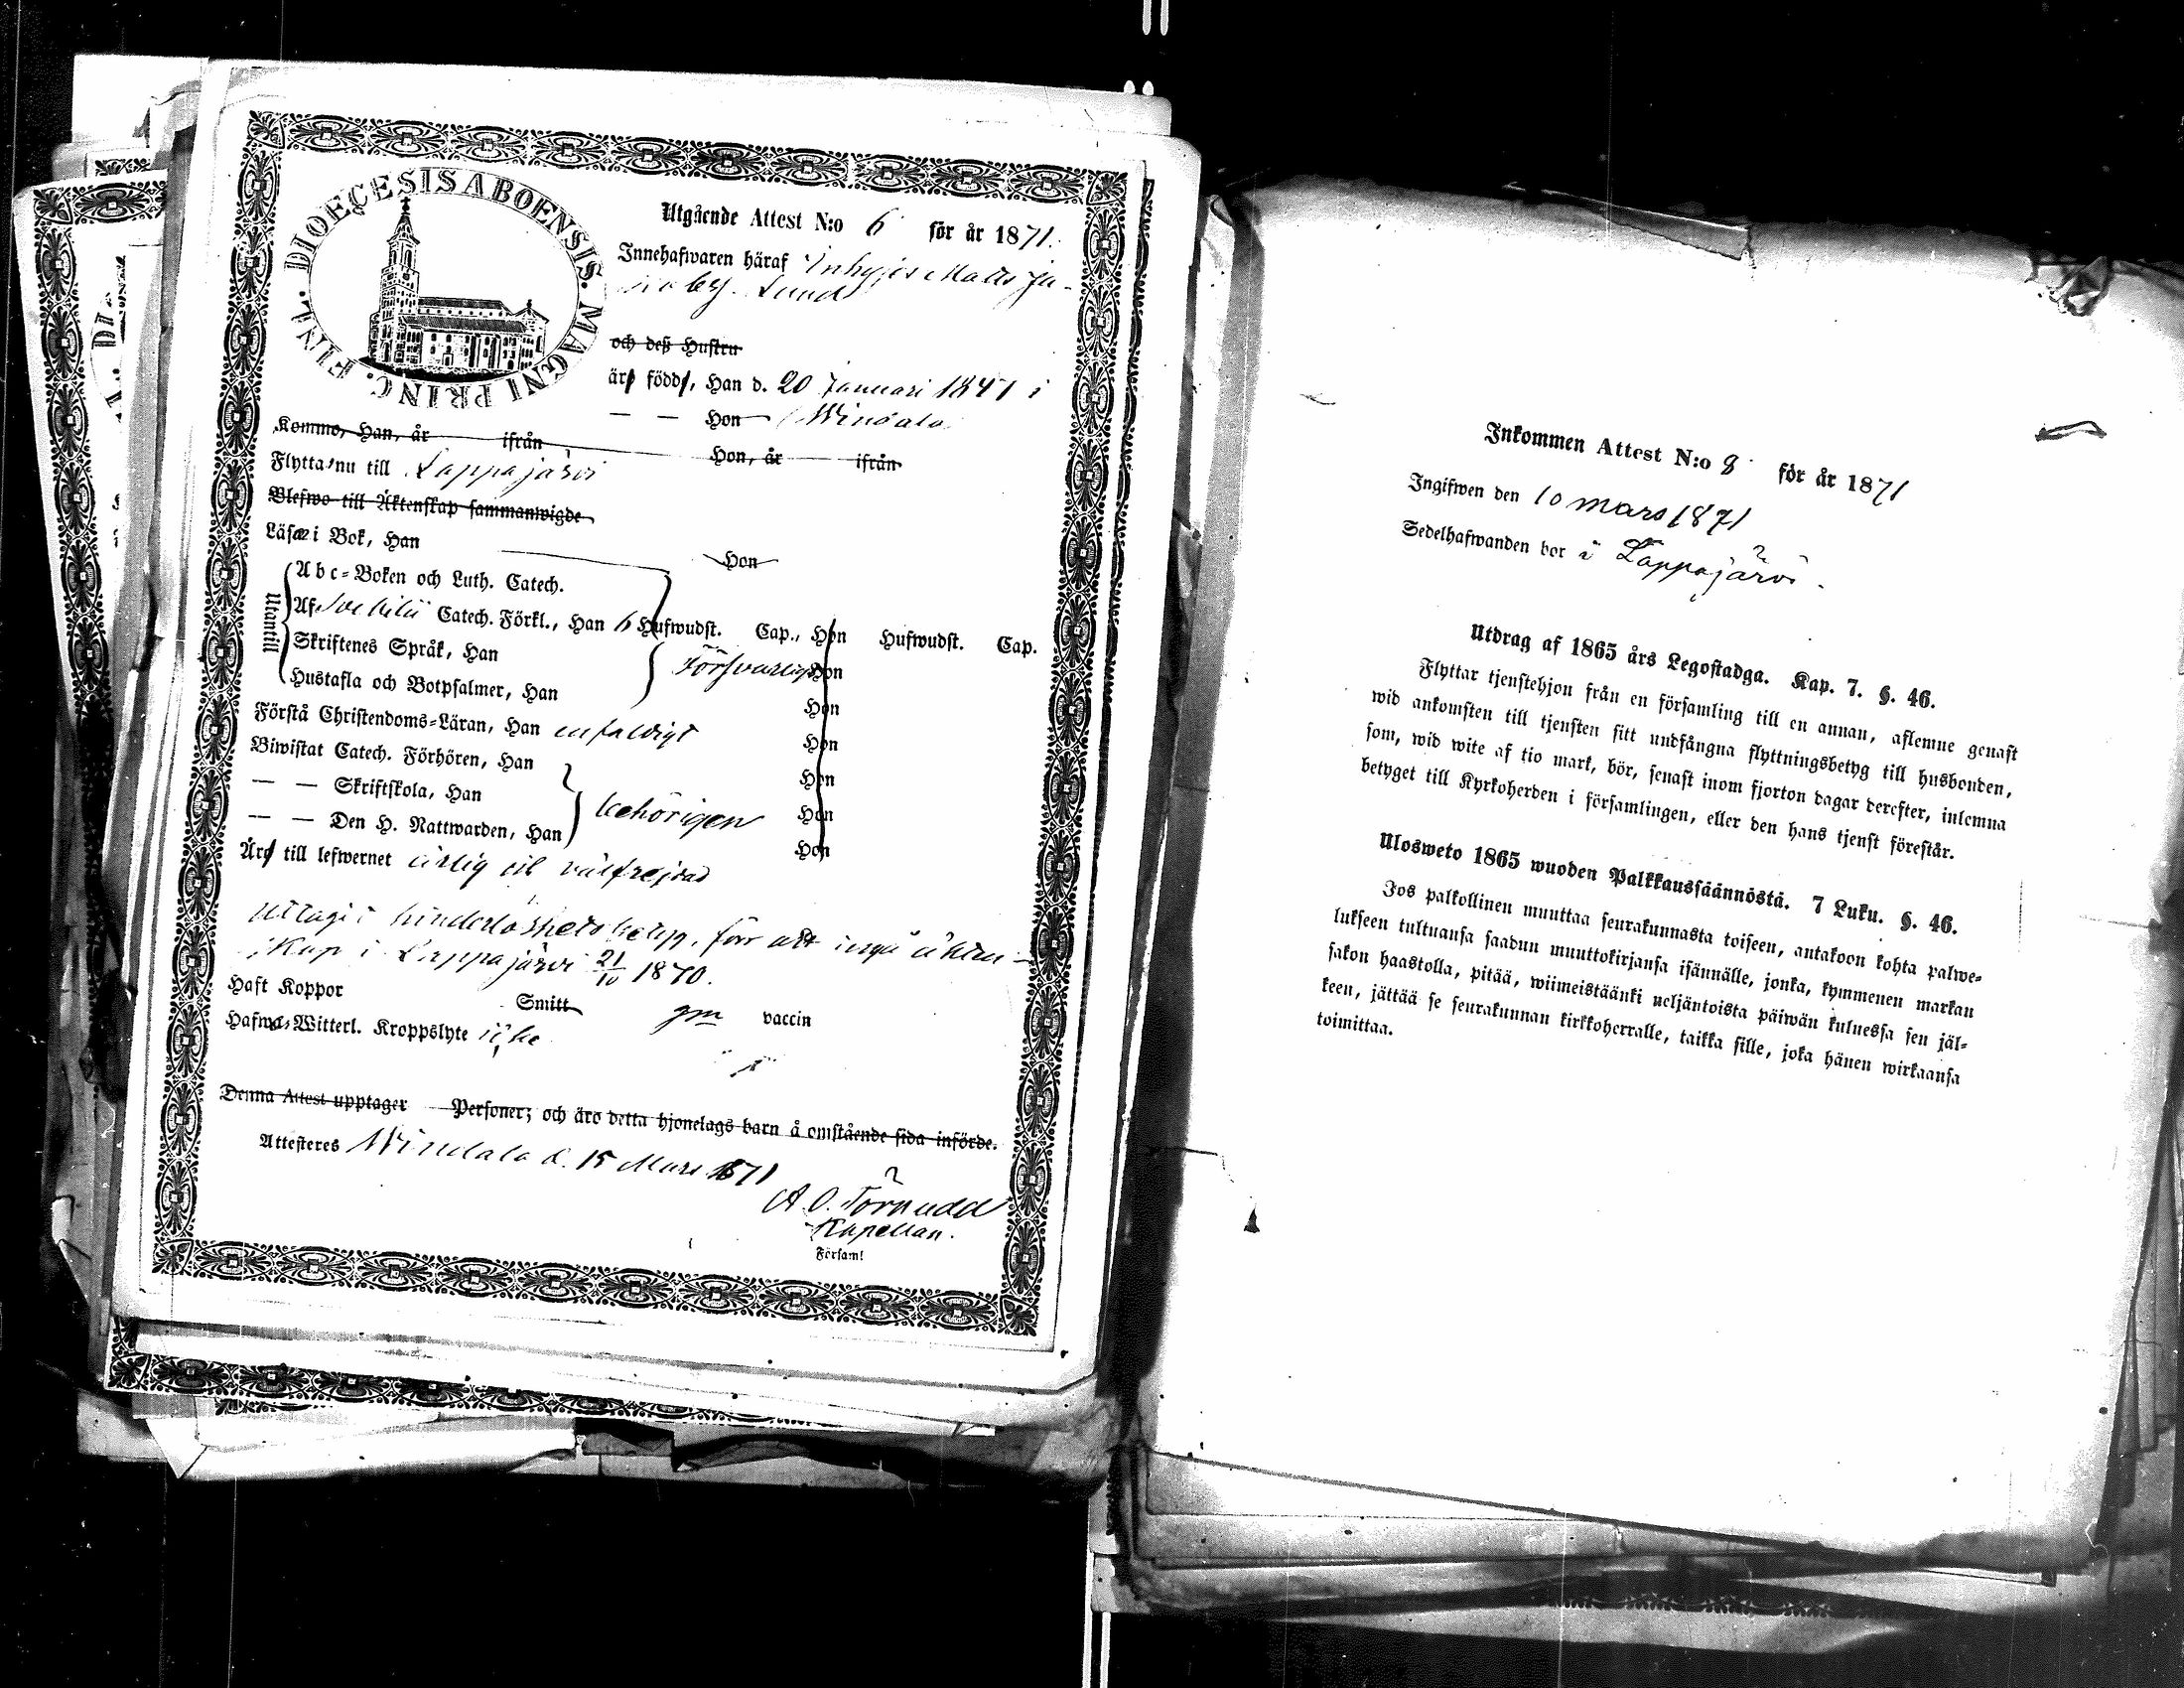 DIOECESIS ABOENSIS. MAGNI PRINC. FINL.
Utgående Attest N:o 6 för år 1871.
Innehafwaren häraf Inhyses Matts Ja-
koby Lund
och deß Hustru
är född, Han d. 20 Januari 1847 i
— — Hon Windala
Kommo, Han, år ifrån Hon, år ifrån
Flytta nu till Lappajärvi
Blefwo till Äktenskap sammanwigde
Läsa i Bok, Han Hon
Utantill
Abc-Boken och Luth. Catech.
Af Svebilii Catech. Förkl., Han 6 Hufwudst. Cap., Hon Hufwudst. Cap.
Skriftenes Språk, Han Försvarligt Hon
Hustafla och Botpsalmer, Han Hon
Förstå Christendoms-Läran, Han enfaldigt Hon
Biwistat Catech. Förhören, Han Hon
— — Skriftskola, Han behörigen Hon
— — Den H. Nattwarden, Han Hon
Är till lefwernet ärlig och välfrejdad
Uttagit hinderlöshetsbetyg, för att ingå äkten-
skap i Lappajärvi 21/10 1870.
Haft Koppor Smitt gm vaccin
Hafwa Witterl. Kroppslyte icke
Denna Attest upptager Personer; och äro detta hjonelags barn å omstående sida införde.
Attesteres Windala d. 15 Mars 1871
A. O. Törnudd
Kapellan.
Församl
Inkommen Attest N:o 8 för år 1871
Ingifwen den 10 mars 1871
Sedelhafwanden bor i Lappajärvi.
Utdrag af 1865 års Legostadga. Kap. 7. §. 46.
Flyttar tjenstehjon från en församling till en annan, aflemne genast
wid ankomsten till tjensten sitt undfångna flyttningsbetyg till husbonden,
som, wid wite af tio mark, bör, senast inom fjorton dagar derefter, inlemna
betyget till Kyrkoherden i församlingen, eller den hans tjenst förestår.
Ulosweto 1865 wuoden Palkkaussäännöstä. 7 Luku. §. 46.
Jos palkollinen muuttaa seurakunnasta toiseen, antakoon kohta palwe-
lukseen tultuansa saadun muuttokirjansa isännälle, jonka, kymmenen markan
sakon haastolla, pitää, wiimeistäänki neljäntoista päiwän kuluessa sen jäl-
keen, jättää se seurakunnan kirkkoherralle, taikka sille, joka hänen wirkaansa
toimittaa.